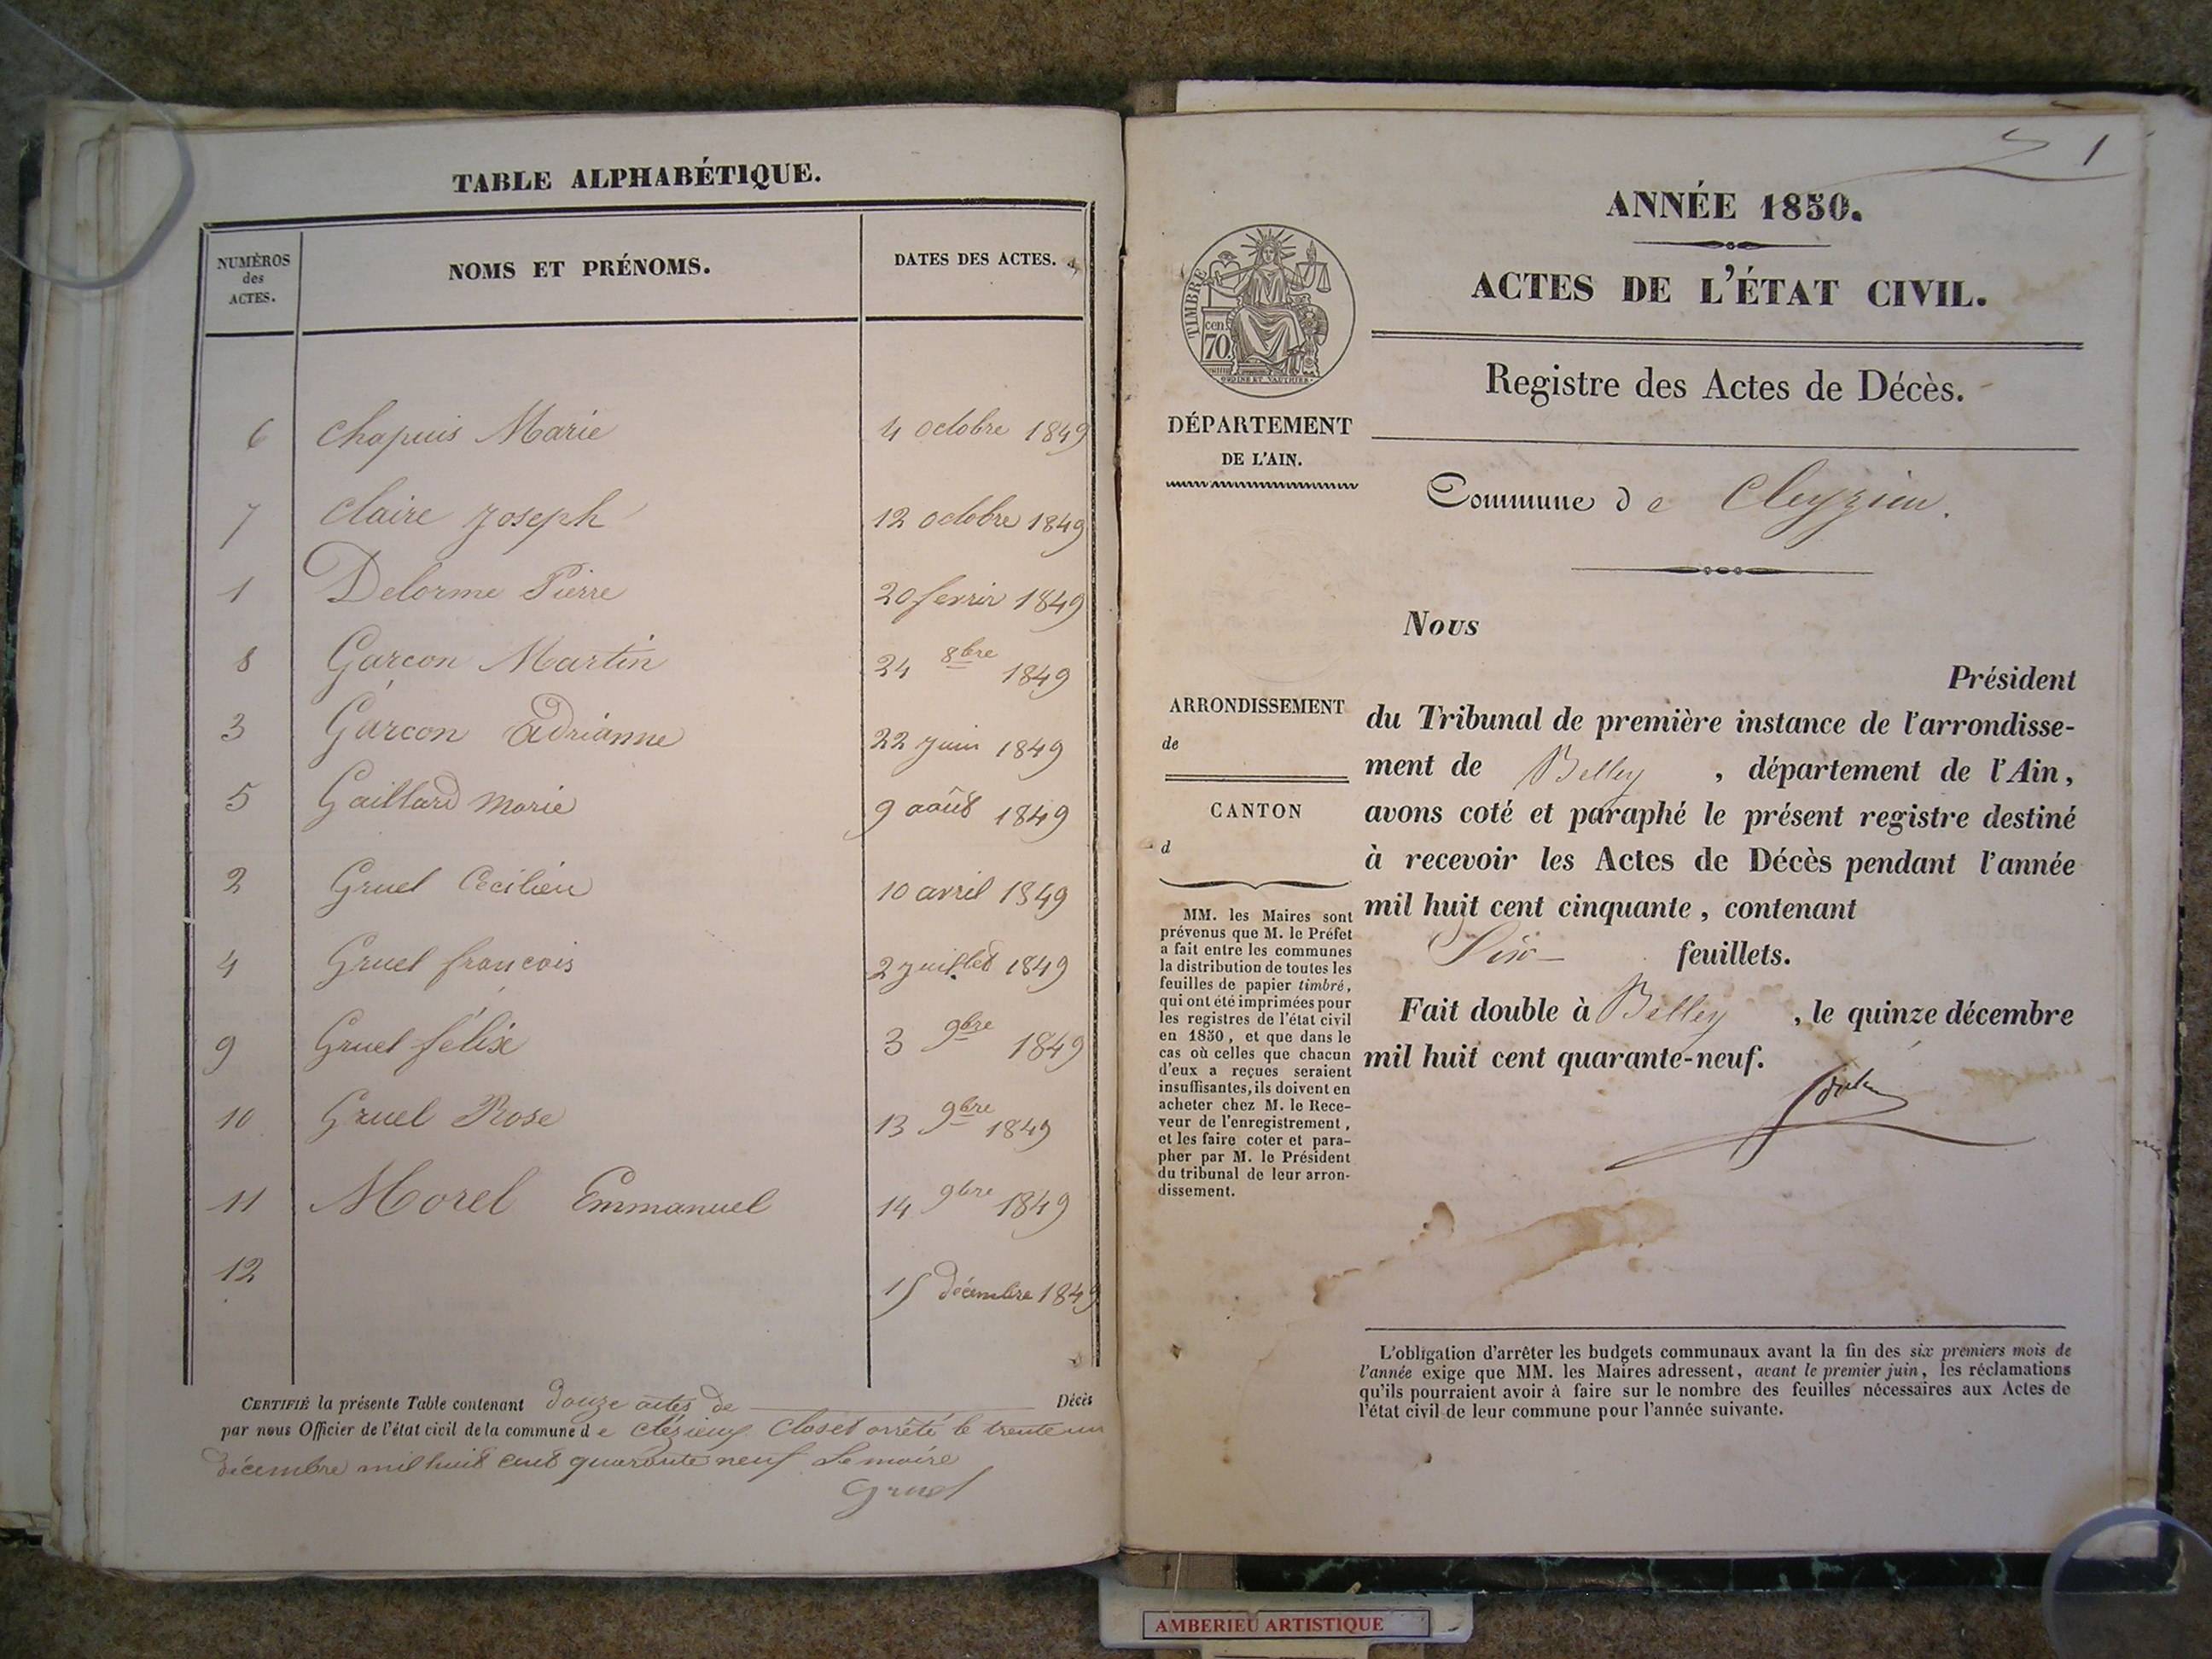 TABLE ALPHABÉTIQUE.
NUMÉROS des ACTES.
NOMS ET PRÉNOMS.
DATES DES ACTES.
6 Chapuis Marie 4 octobre 1849
7 Claire Joseph 12 octobre 1849
1 Delorme Pierre 20 fevrir 1849
8 Garçon Martin 24 8bre 1849
3 Garçon Adrianne 22 juin 1849
5 Gaillard Marie 9 août 1849
2 Gruel Cecilien 10 avril 1849
4 Gruel françois 2 juillet 1849
9 Gruel félix 3 9bre 1849
10 Gruel Rose 13 9bre 1849
11 Morel Emmanuel 14 9bre 1849
12 15 décembre 1849
CERTIFIÉ la présente Table contenant douze actes de Décès
par nous Officier de l'état civil de la commune de Clézieux Closet arrêté le trente un
décembre mil huit cent quarante neuf Le maire
Gruel
1
ANNÉE 1850.
ACTES DE L'ÉTAT CIVIL.
TIMBRE
cen.
70.
Registre des Actes de Décès.
DÉPARTEMENT
DE L'AIN.
Commune de Cleyzieu.
Nous
Président
ARRONDISSEMENT
de
CANTON
d
du Tribunal de première instance de l'arrondisse-
ment de Belley, département de l'Ain,
avons coté et paraphé le présent registre destiné
à recevoir les Actes de Décès pendant l'année
mil huit cent cinquante, contenant
Six feuillets.
Fait double à Belley, le quinze décembre
mil huit cent quarante-neuf.
MM. les Maires sont
prévenus que M. le Préfet
a fait entre les communes
la distribution de toutes les
feuilles de papier timbré,
qui ont été imprimées pour
les registres de l'état civil
en 1850, et que dans le
cas où celles que chacun
d'eux a reçues seraient
insuffisantes, ils doivent en
acheter chez M. le Rece-
veur de l'enregistrement,
et les faire coter et para-
pher par M. le Président
du tribunal de leur arron-
dissement.
L'obligation d'arrêter les budgets communaux avant la fin des six premiers mois de
l'année exige que MM. les Maires adressent, avant le premier juin, les réclamations
qu'ils pourraient avoir à faire sur le nombre des feuilles nécessaires aux Actes de
l'état civil de leur commune pour l'année suivante.
AMBERIEU ARTISTIQUE